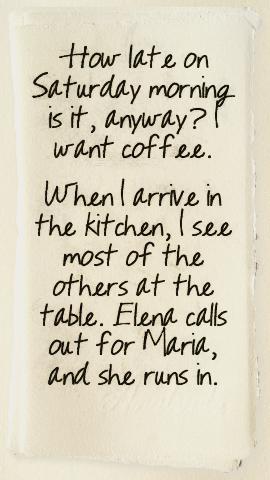 How late on
Saturday morning
is it, anyway? I
want coffee.
When I arrive in
the kitchen, I see
most of the
others at the
table. Elena calls
out for Maria,
and she runs in.